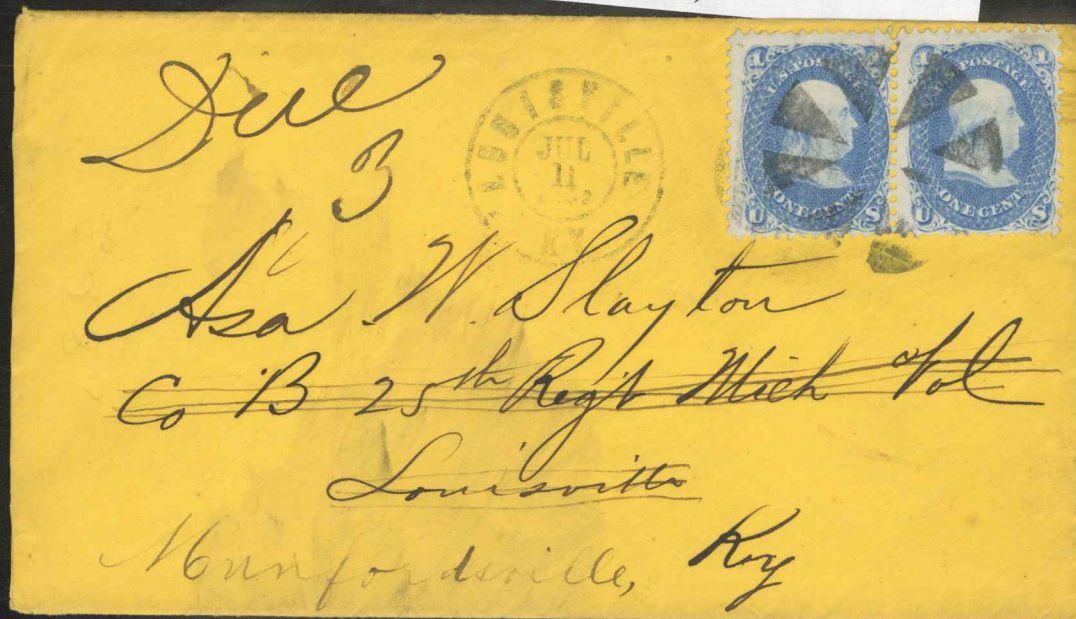 Due
3
LOUISVILLE
JUL
11
KY.
1 U.S. POSTAGE 1
ONE CENT
U S
1 U.S. POSTAGE 1
ONE CENT
U S
Asa W. Slayton
Co B 25th Reg't Mich Vol
Louisville
Munfordsville, Ky